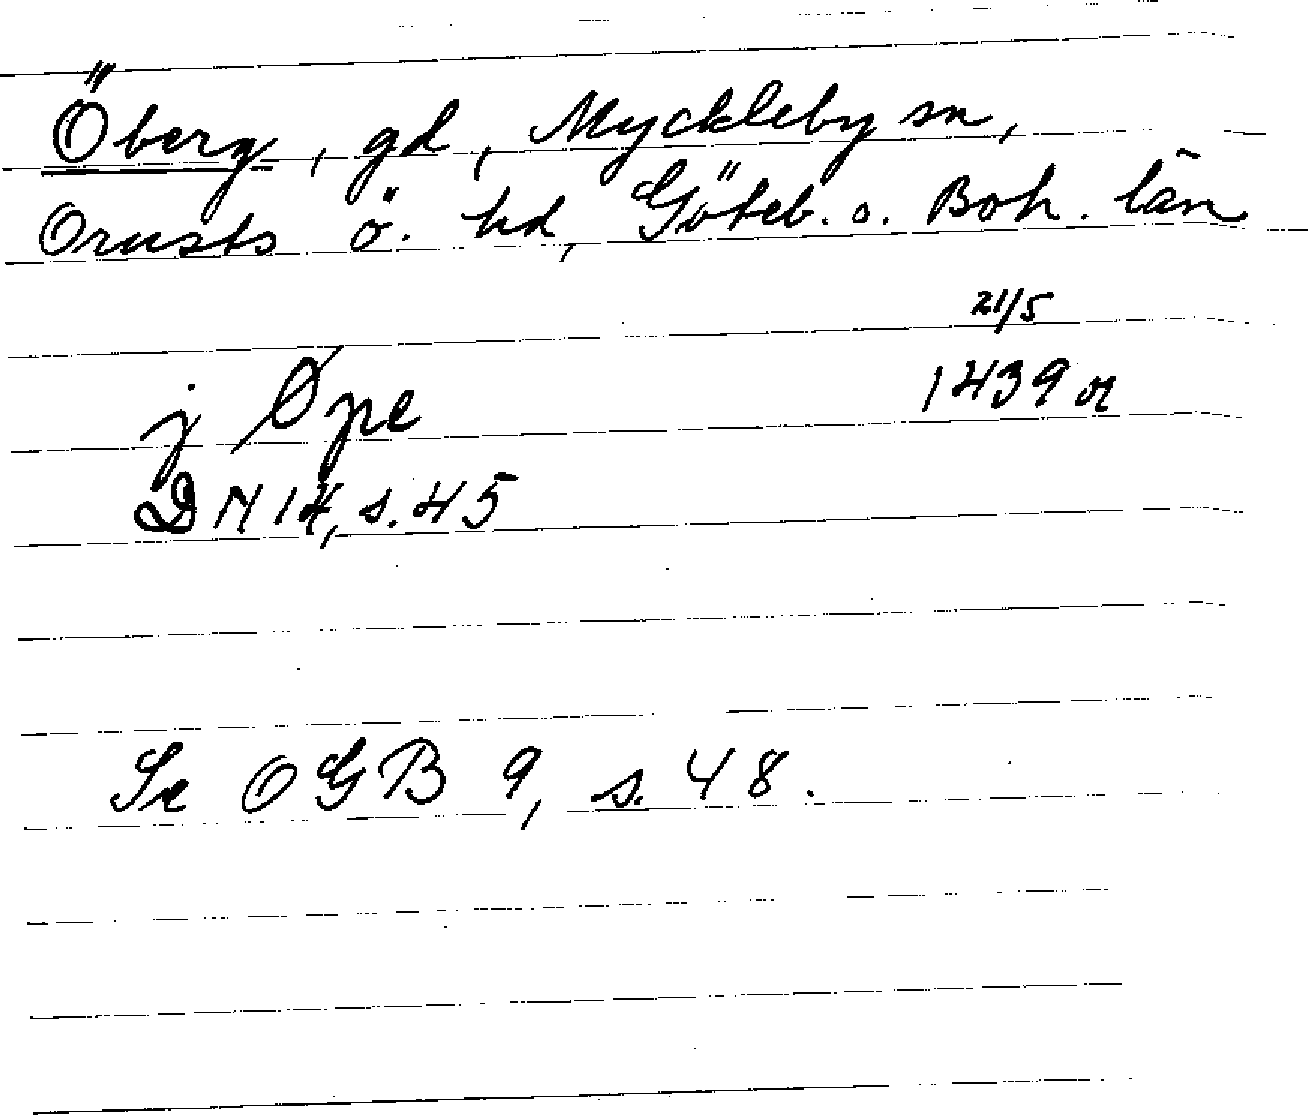 Öberg, gd, Myckleby sn,
Orusts ö. hd, Göteb. o. Boh. län
21/5
j Øpe 1439 or
DN 14, s. 45
Se OGB 9, s. 48.